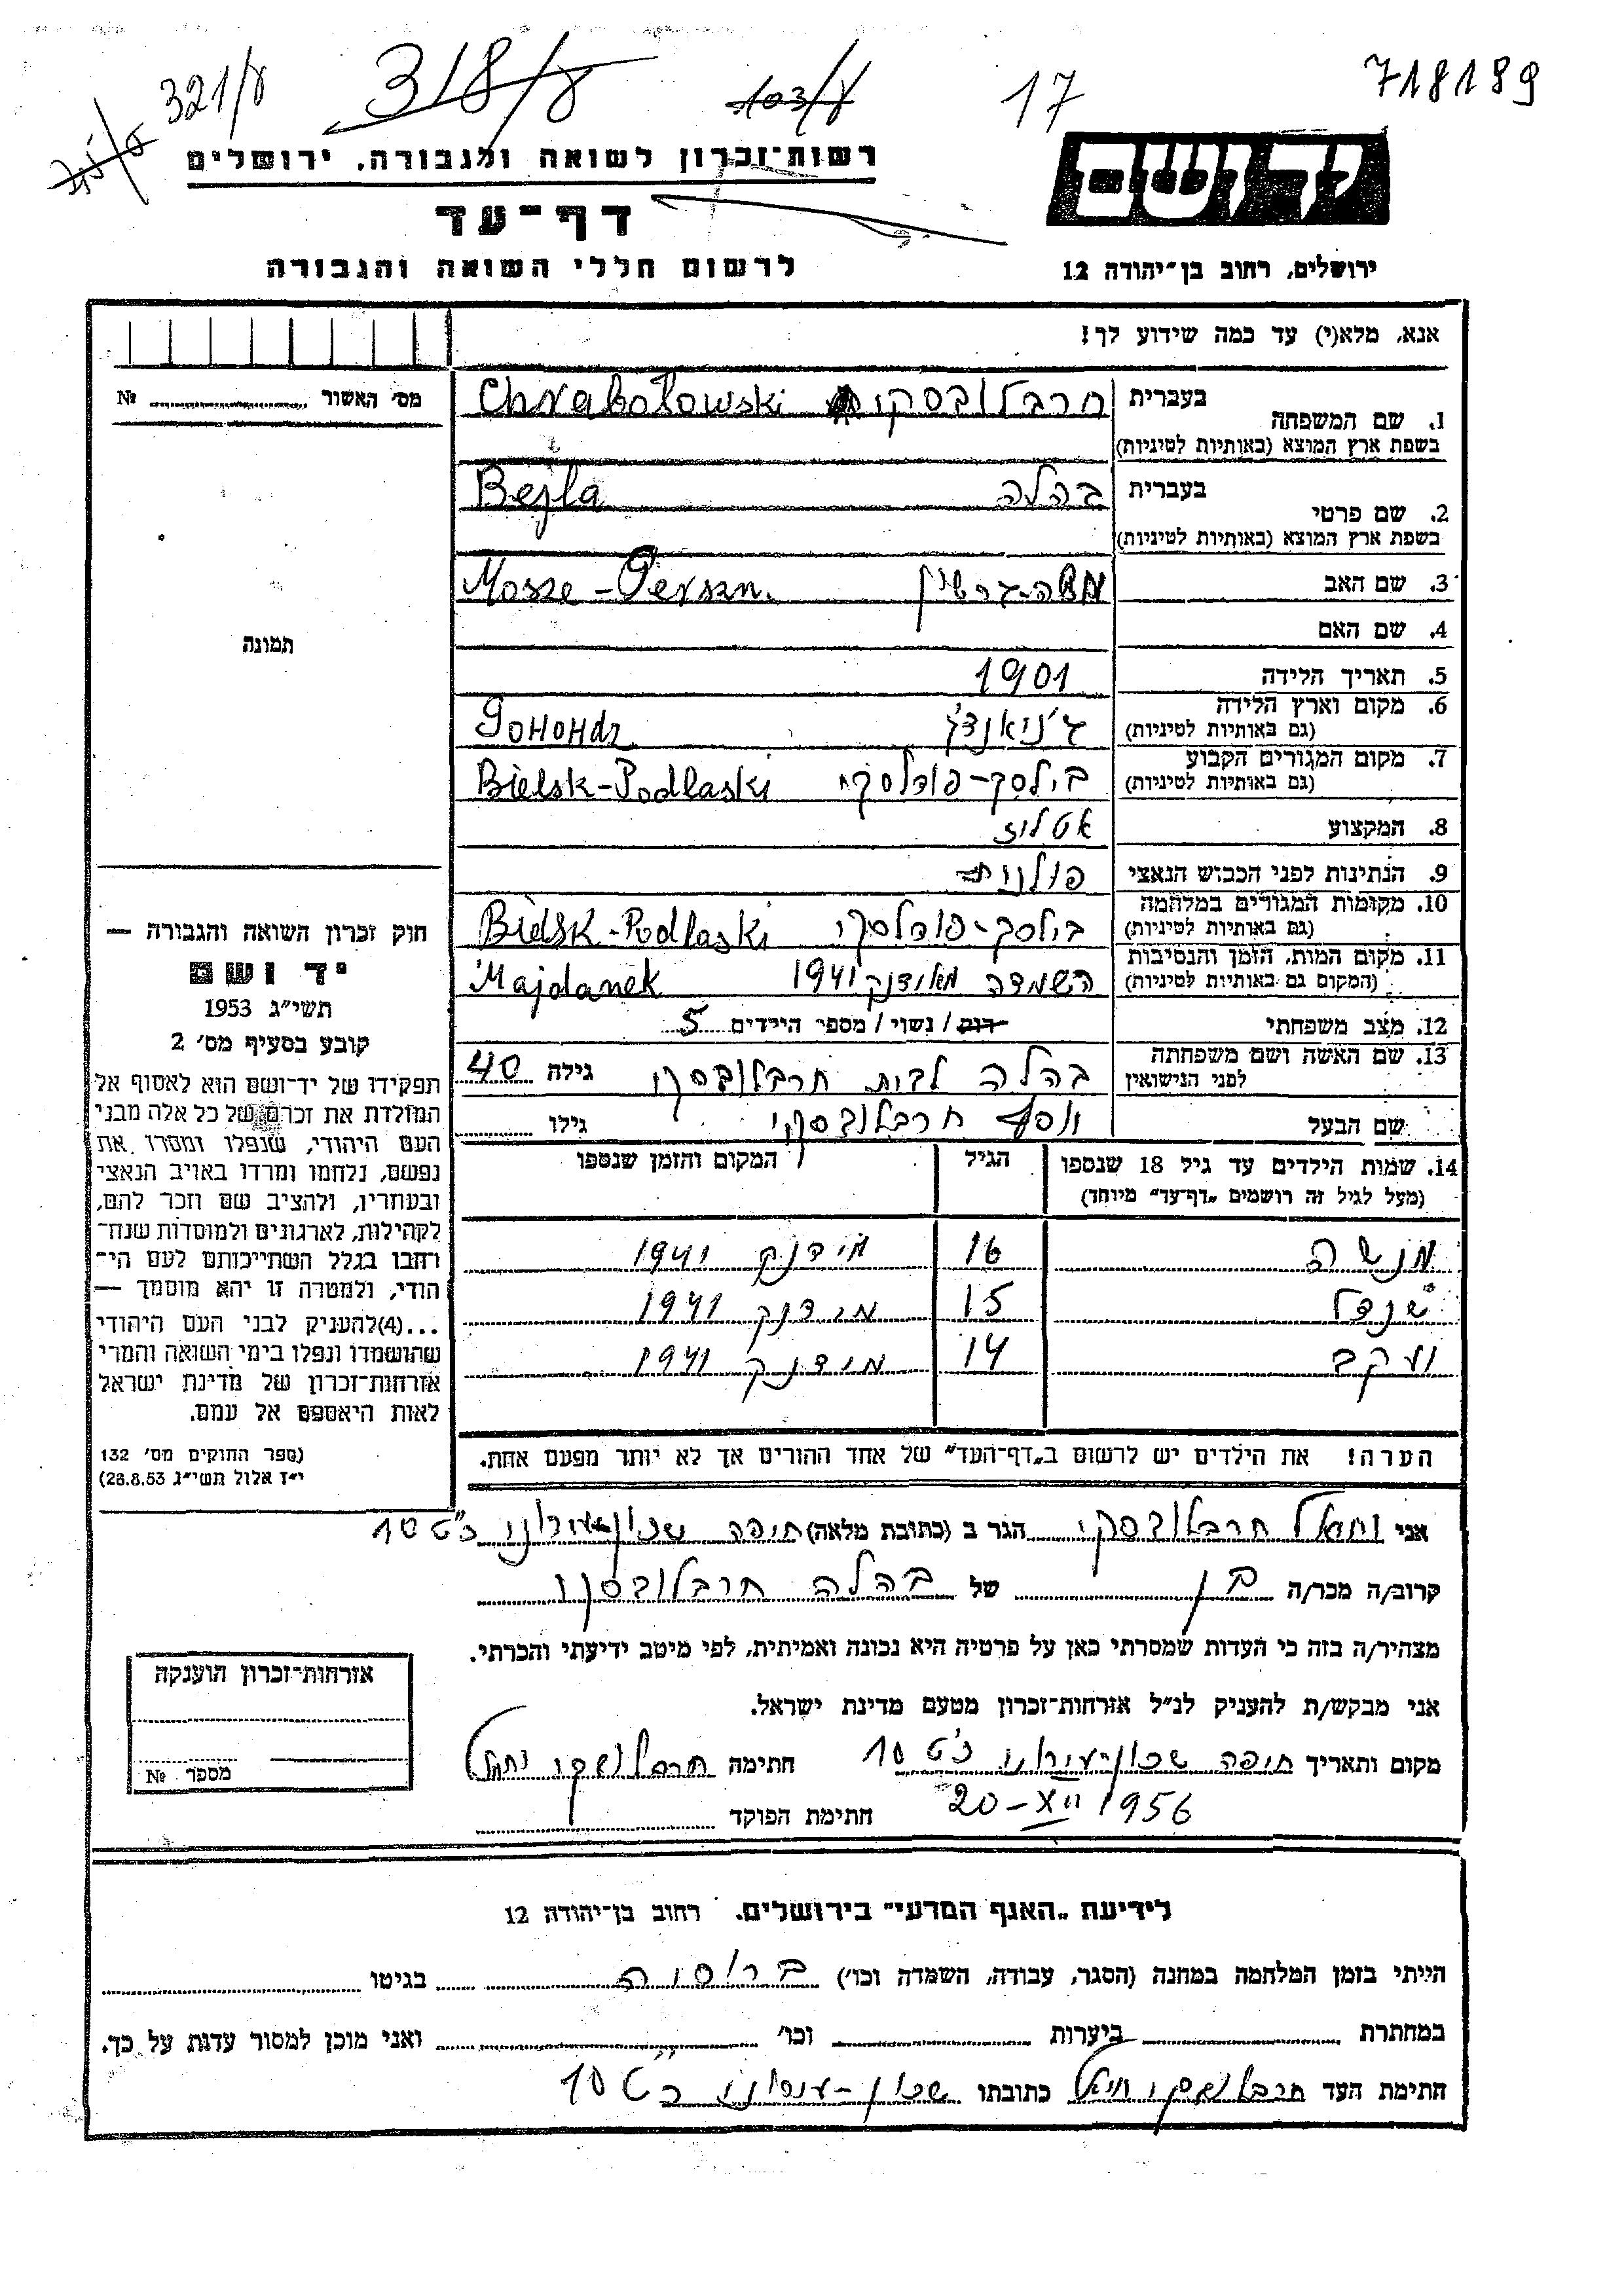 718189
17
103/ץ
318/ץ
321/ץ
יד ושם
רשות־זכרון לשואה ולגבורה, ירושלים
דף־עד
לרשום חללי השואה והגבורה
ירושלים, רחוב בן־יהודה 12
אנא, מלא(י) עד כמה שידוע לך!
מס׳ האשור № 
1. שם המשפחה בעברית חרבלובסקי Chrabołowski
בשפת ארץ המוצא (באותיות לטיניות)
2. שם פרטי בעברית בהלה Bejla
בשפת ארץ המוצא (באותיות לטיניות)
3. שם האב משה-גרשון Mosze-Gerszn.
4. שם האם
5. תאריך הלידה 1901
6. מקום וארץ הלידה
(גם באותיות לטיניות) גוניאנדז
7. מקום המגורים הקבוע
(גם באותיות לטיניות) בילסק-פודלסקי Bielsk-Podlaski
8. המקצוע אטליז
9. הנתינות לפני הכבוש הנאצי פולנית
10. מקומות המגורים במלחמה
(גם באותיות לטיניות) בילסק-פודלסקי Bielsk-Podlaski
11. מקום המות, הזמן והנסיבות
(המקום גם באותיות לטיניות) השמדה מאידנק 1941 Majdanek
12. מצב משפחתי רוק / נשוי / מספר הילדים 5
13. שם האשה ושם משפחתה
לפני הנישואין בהלה לבית חרבלובסקי גילה 40
שם הבעל יוסף חרבלובסקי גילו
14. שמות הילדים עד גיל 18 שנספו הגיל המקום והזמן שנספו
(מעל לגיל זה רושמים „דף־עד״ מיוחד)
מנשה 16 מידנק 1941
שנדל 15 מידנק 1941
יעקב 14 מידנק 1941
הערה! את הילדים יש לרשום ב„דף־העד״ של אחד ההורים אך לא יותר מפעם אחת.
תמונה
חוק זכרון השואה והגבורה —
יד ושם
תשי״ג 1953
קובע בסעיף מס׳ 2
תפקידו של יד־ושם הוא לאסוף אל
המולדת את זכרם של כל אלה מבני
העם היהודי, שנפלו ומסרו את
נפשם, נלחמו ומרדו באויב הנאצי
ובעוזריו, ולהציב שם וזכר להם,
לקהילות, לארגונים ולמוסדות שנח־
רבו בגלל השתייכותם לעם הי־
הודי, ולמטרה זו יהא מוסמך —
...(4)להעניק לבני העם היהודי
שהושמדו ונפלו בימי השואה והמרי
אזרחות־זכרון של מדינת ישראל
לאות היאספם אל עמם.
(ספר החוקים מס׳ 132
י״ז אלול תשי״ג 28.8.53)
אני יחיאל חרבלובסקי הגר ב (כתובת מלאה) חיפה שכון-עירוני 10
קרוב/ה מכר/ה בן של בהלה חרבלובסקי
מצהיר/ה בזה כי העדות שמסרתי כאן על פרטיה היא נכונה ואמיתית, לפי מיטב ידיעתי והכרתי.
אני מבקש/ת להעניק לנ״ל אזרחות־זכרון מטעם מדינת ישראל.
מקום ותאריך חיפה שכון-עירוני 10 חתימה חרבלובסקי יחיאל
20-XII 1956
חתימת הפוקד
אזרחות־זכרון הוענקה
מספר №
לידיעת „האגף המדעי״ בירושלים. רחוב בן־יהודה 12
הייתי בזמן המלחמה במחנה (הסגר, עבודה, השמדה וכו׳) ברוסיה בגיטו
במחתרת ביערות וכו׳ ואני מוכן למסור עדות על כך.
חתימת העד חרבלובסקי יחיאל כתובתו שכון-עירוני 10